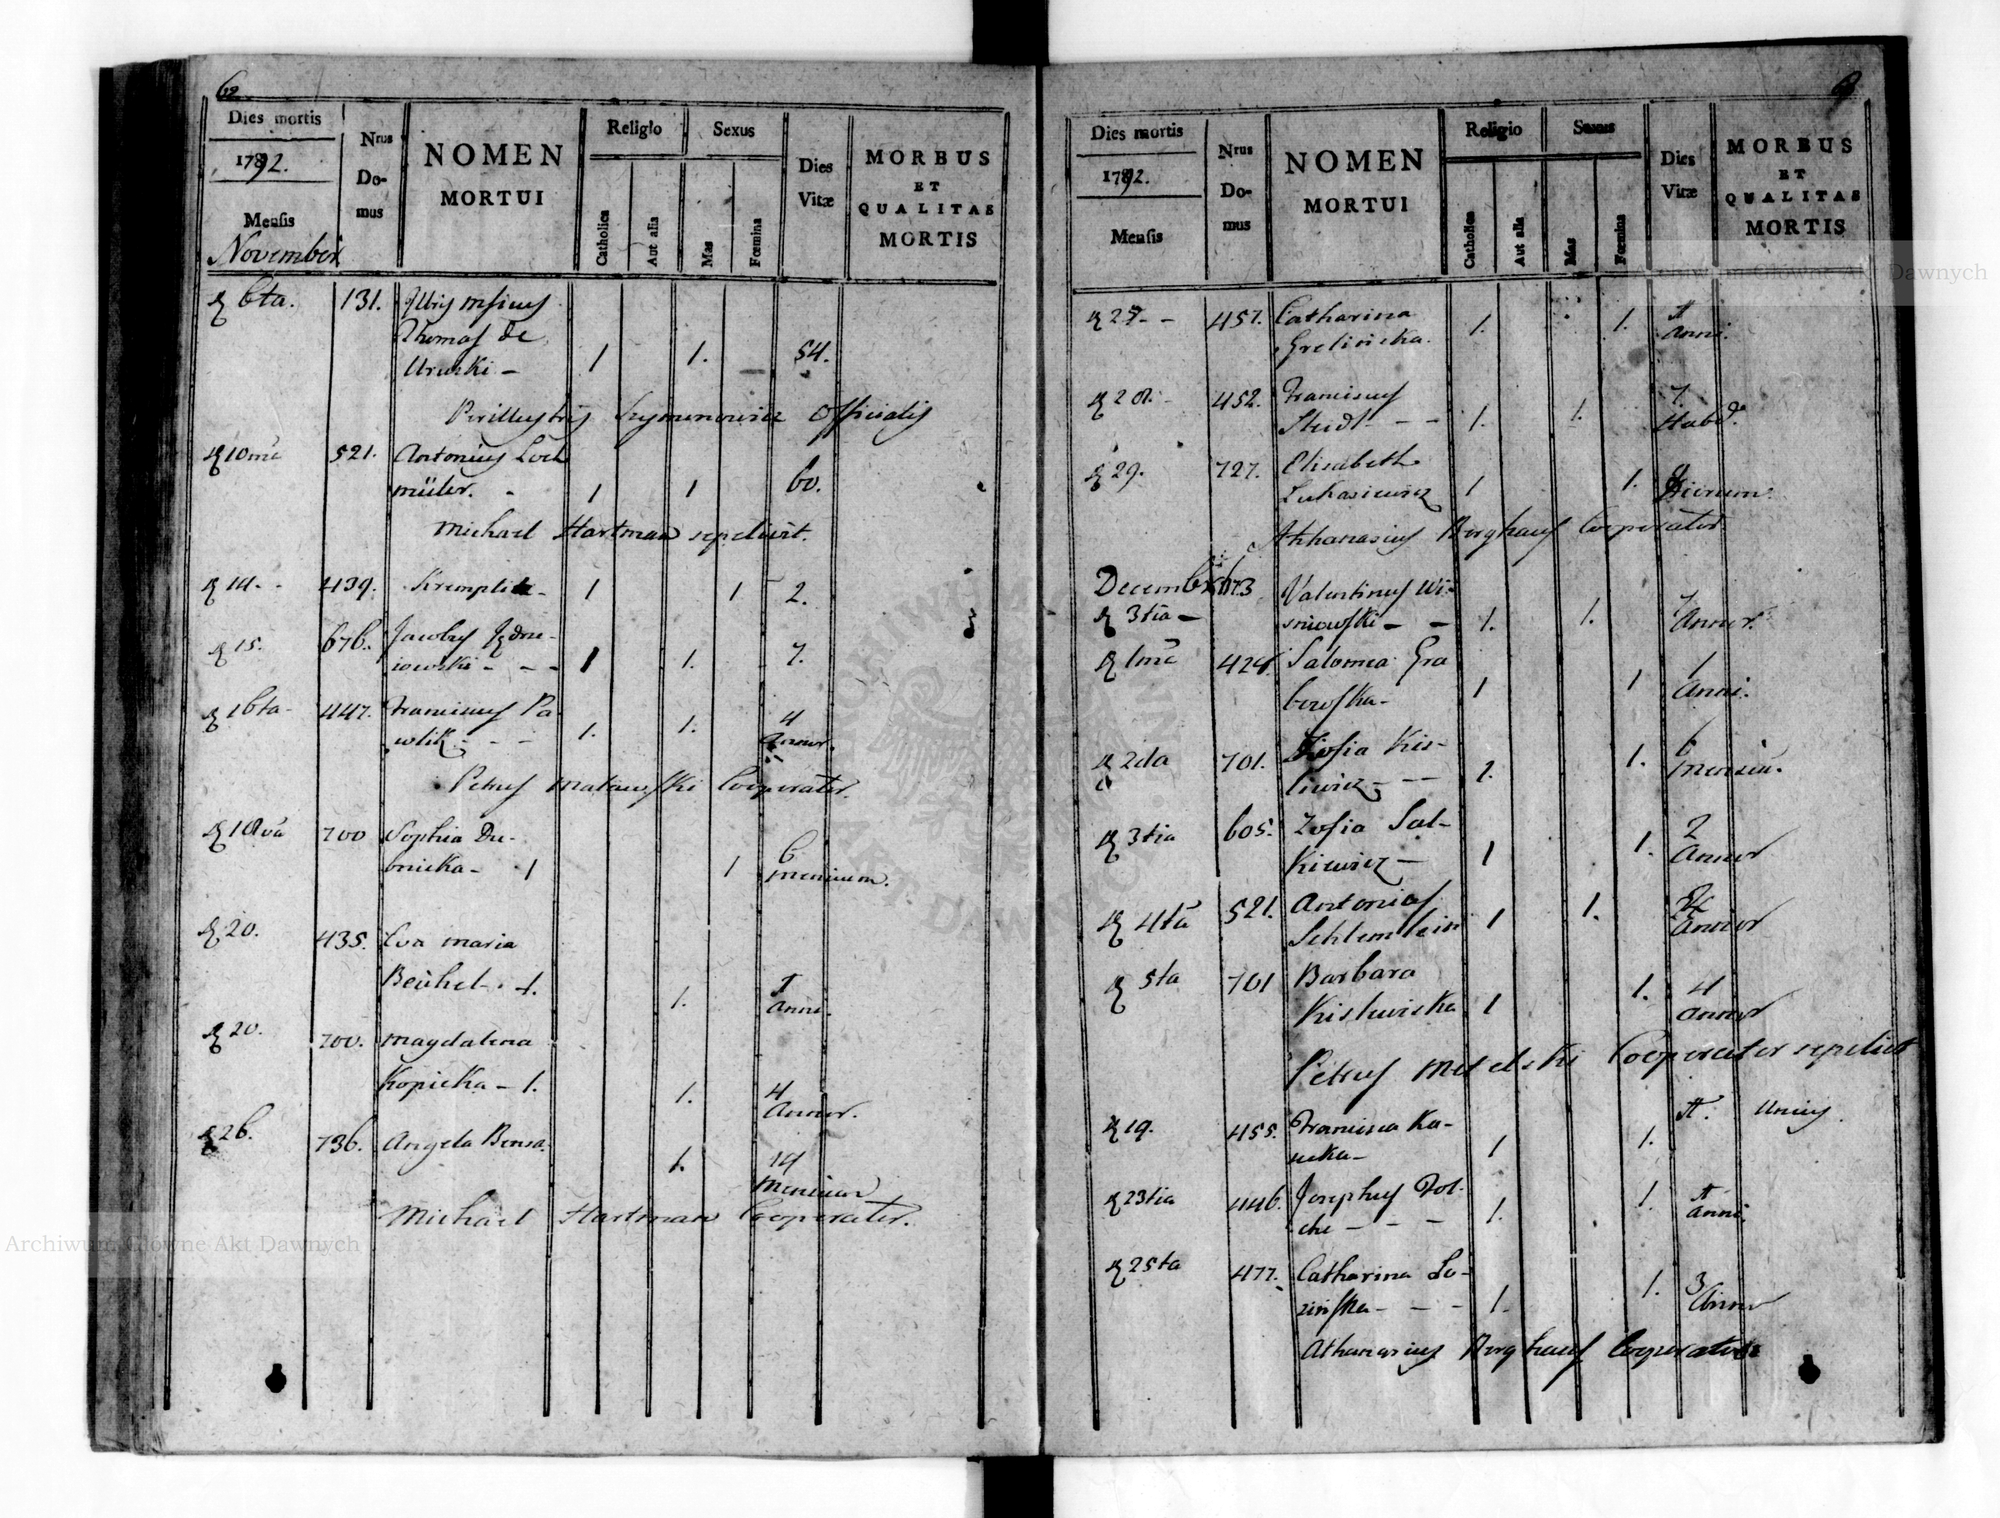 62
Dies mortis
1792.
Mensis
November
Nrus
Do-
mus
NOMEN
MORTUI
Religio
Catholica
Aut alia
Sexus
Mas
Fœmina
Dies
Vitæ
MORBUS
ET
QUALITAS
MORTIS
6ta. 131.
Thomas de
Uruski - 1 1. 54.
Perillustris Szymonowicz Officialis
10ma 521. Antonius Loch
müler. 1 1 60.
Michael Hartman sepelivit.
14. 439. 1 1 2.
15. 676. Jacobus
iowski - - - 1 1. 7.
16ta 447. Franciscus Pa
wlik - - 1. 1. 4
Annor.
Petrus Cooperator.
18va 700 Sophia Du-
bnicka - 1 1 6
mensium.
20. 435. Eva Maria
Beühel - 1. 1. 1
Anni.
20. 700. Magdalena
Kopicka - 1. 1. 4
Annor.
26. 736. Angela Bensa. 1. 14
Mensium
Michael Hartman Cooperator.
Dies mortis
1792.
Mensis
Nrus
Do-
mus
NOMEN
MORTUI
Religio
Catholica
Aut alia
Sexus
Mas
Fœmina
Dies
Vitæ
MORBUS
ET
QUALITAS
MORTIS
27 - - 457. Catharina
1. 1. Anni.
28. 452. Franciscus
Steidl - - 1. 1. 7
Hebd.
29. 727. Elisabeth
Lukasiewicz 1 1. Dierum.
Athanasius Berghauf Cooperator
December
3tia - Valentinus Wi-
sniowski - - 1. 1. 7
Annor.
1ma 424 Salomea Gra
bowska - 1 1 1
Anni.
2da 701. Zofia Kis-
liewicz - - 1. 1. 6
mensiu.
3tia 605. Zofia Sal-
kiewicz - 1 1. 2
Annor
4ta 521. Antonius
Schlemlein 1 1. Annor
5ta 701 Barbara
1 1. 4
Annor
Petrus Cooperator sepelivit
19. 455. Francisca Ka-
1 1. Unius
23tia 446. Josephus Dol-
che - - - 1. 1. Anni.
25sta 477. Catharina Lo-
zinska - - - 1. 1. 3
Annor
Athanasius Berghauf Cooperator
Archiwum Główne Akt Dawnych
Archiwum Główne Akt Dawnych
ARCHIWUM GŁÓWNE AKT DAWNYCH